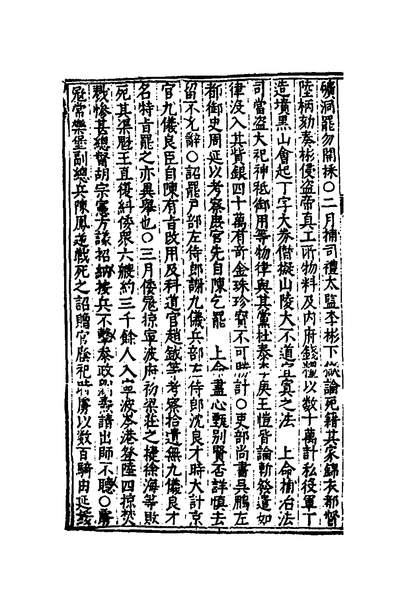 礦洞罷勿開採○二月捕司禮太監李彬下獄論死籍其家錦衣都督
陸柄劾奏彬侵盜帝真工所物料及內府錢糧以數十萬計私役軍丁
造墳黑山會起丁字大券僭擬山陵大不道宜寘之法 上命捕治法
司當盜大祀神祗御用等物律與其黨杜泰李庚王愷皆論斬發遣如
律汲入其貲銀四十萬有奇金珠珍寶不可勝計○吏部尚書吳鵬左
都御史周延以考察屆官先自陳乞罷 上命盡心甄別賢否詳慎去
留不允辭○詔罷戶部左侍郎謝九儀兵部左侍郎沈良才時大計京
官九儀良臣自陳有旨改用及科道官趙鏜等考察拾遺無九儀良才
名特旨罷之亦異舉也○三月倭寇掠寧波府初梁莊之捷徐海等敗
死其渠魁王直復糾倭衆六艘約三千餘人入寧波岑港登陸四掠焚
戮慘甚總督胡宗憲方議招納按兵不擊參政 請出師不聽○
寇常樂堡副總兵陳鳳逆戰死之詔贈官廕祀時虜以數百騎由延綏